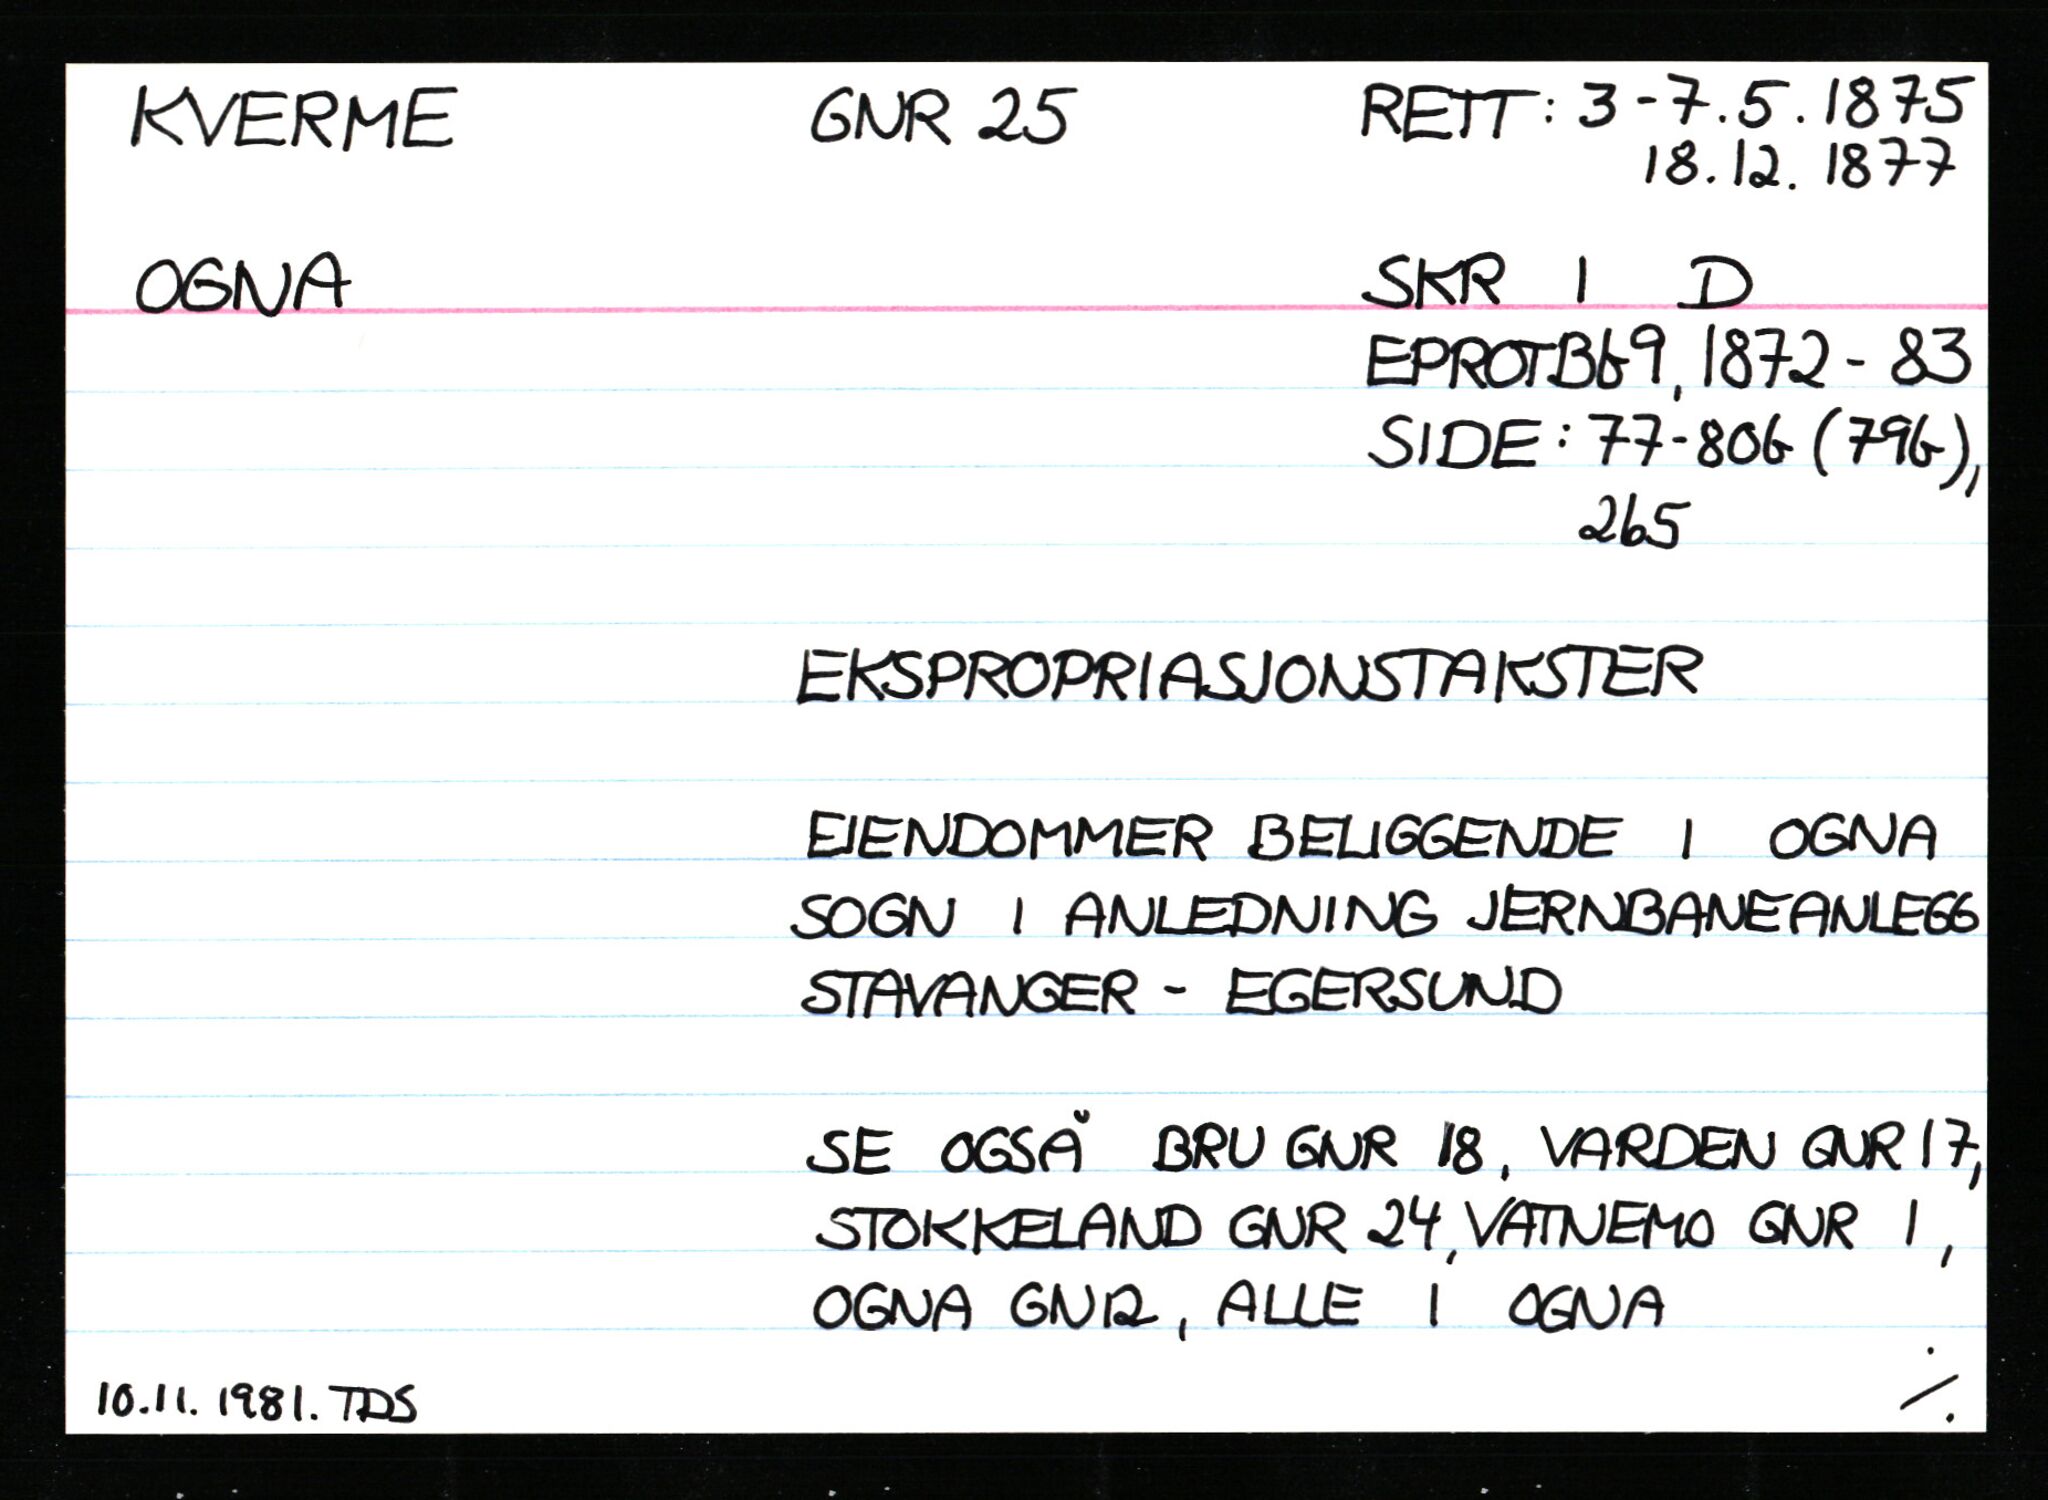 KVERME GNR 25 RETT: 3-7.5.1875
18.12.1877
OGNA SKR I D
EPROTB69, 1872-83
SIDE: 77-80b (79b),
265
EKSPROPRIASJONSTAKSTER
EIENDOMMER BELIGGENDE I OGNA
SOGN I ANLEDNING JERNBANEANLEGG
STAVANGER - EGERSUND
SE OGSÅ BRU GNR 18, VARDEN GNR 17,
STOKKELAND GNR 24, VATNEMO GNR 1,
OGNA GNR, ALLE I OGNA
10.11.1981. TDS ./.